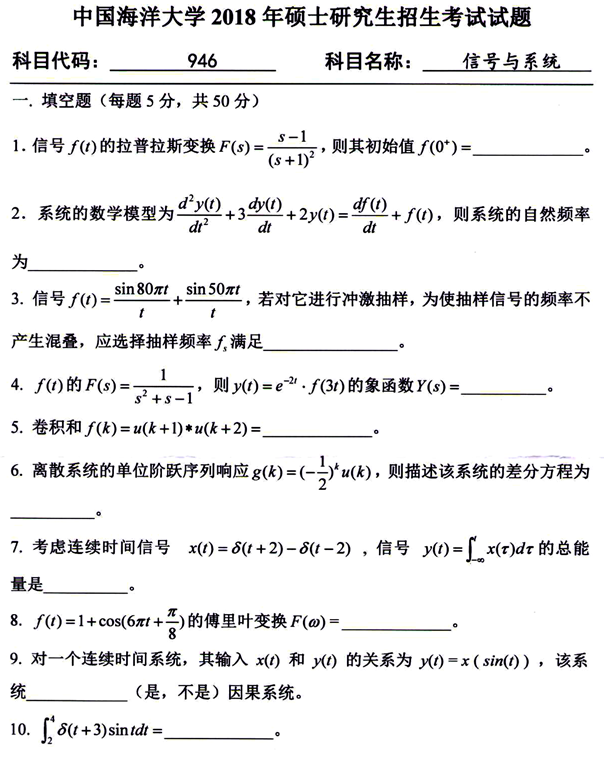 中国海洋大学 2018 年硕士研究生招生考试试题
科目代码： 946 科目名称： 信号与系统
一. 填空题（每题 5 分，共 50 分）
1. 信号 f(t) 的拉普拉斯变换 F(s) = (s−1)/(s+1)²，则其初始值 f(0⁺) = ____________。
2. 系统的数学模型为 d²y(t)/dt² + 3 dy(t)/dt + 2y(t) = df(t)/dt + f(t)，则系统的自然频率
为____________。
3. 信号 f(t) = sin80πt/t + sin50πt/t，若对它进行冲激抽样，为使抽样信号的频率不
产生混叠，应选择抽样频率 fₛ 满足______________。
4. f(t) 的 F(s) = 1/(s²+s−1)，则 y(t) = e⁻²ᵗ · f(3t) 的象函数 Y(s) = __________。
5. 卷积和 f(k) = u(k+1)*u(k+2) = ____________。
6. 离散系统的单位阶跃序列响应 g(k) = (−1/2)ᵏ u(k)，则描述该系统的差分方程为
__________。
7. 考虑连续时间信号 x(t) = δ(t+2) − δ(t−2) ，信号 y(t) = ∫_{−∞}^{t} x(τ)dτ 的总能
量是__________。
8. f(t) = 1 + cos(6πt + π/8) 的傅里叶变换 F(ω) = ____________。
9. 对一个连续时间系统，其输入 x(t) 和 y(t) 的关系为 y(t) = x ( sin(t) ) ，该系
统____________（是，不是）因果系统。
10. ∫_{2}^{4} δ(t+3)sin tdt = ____________。